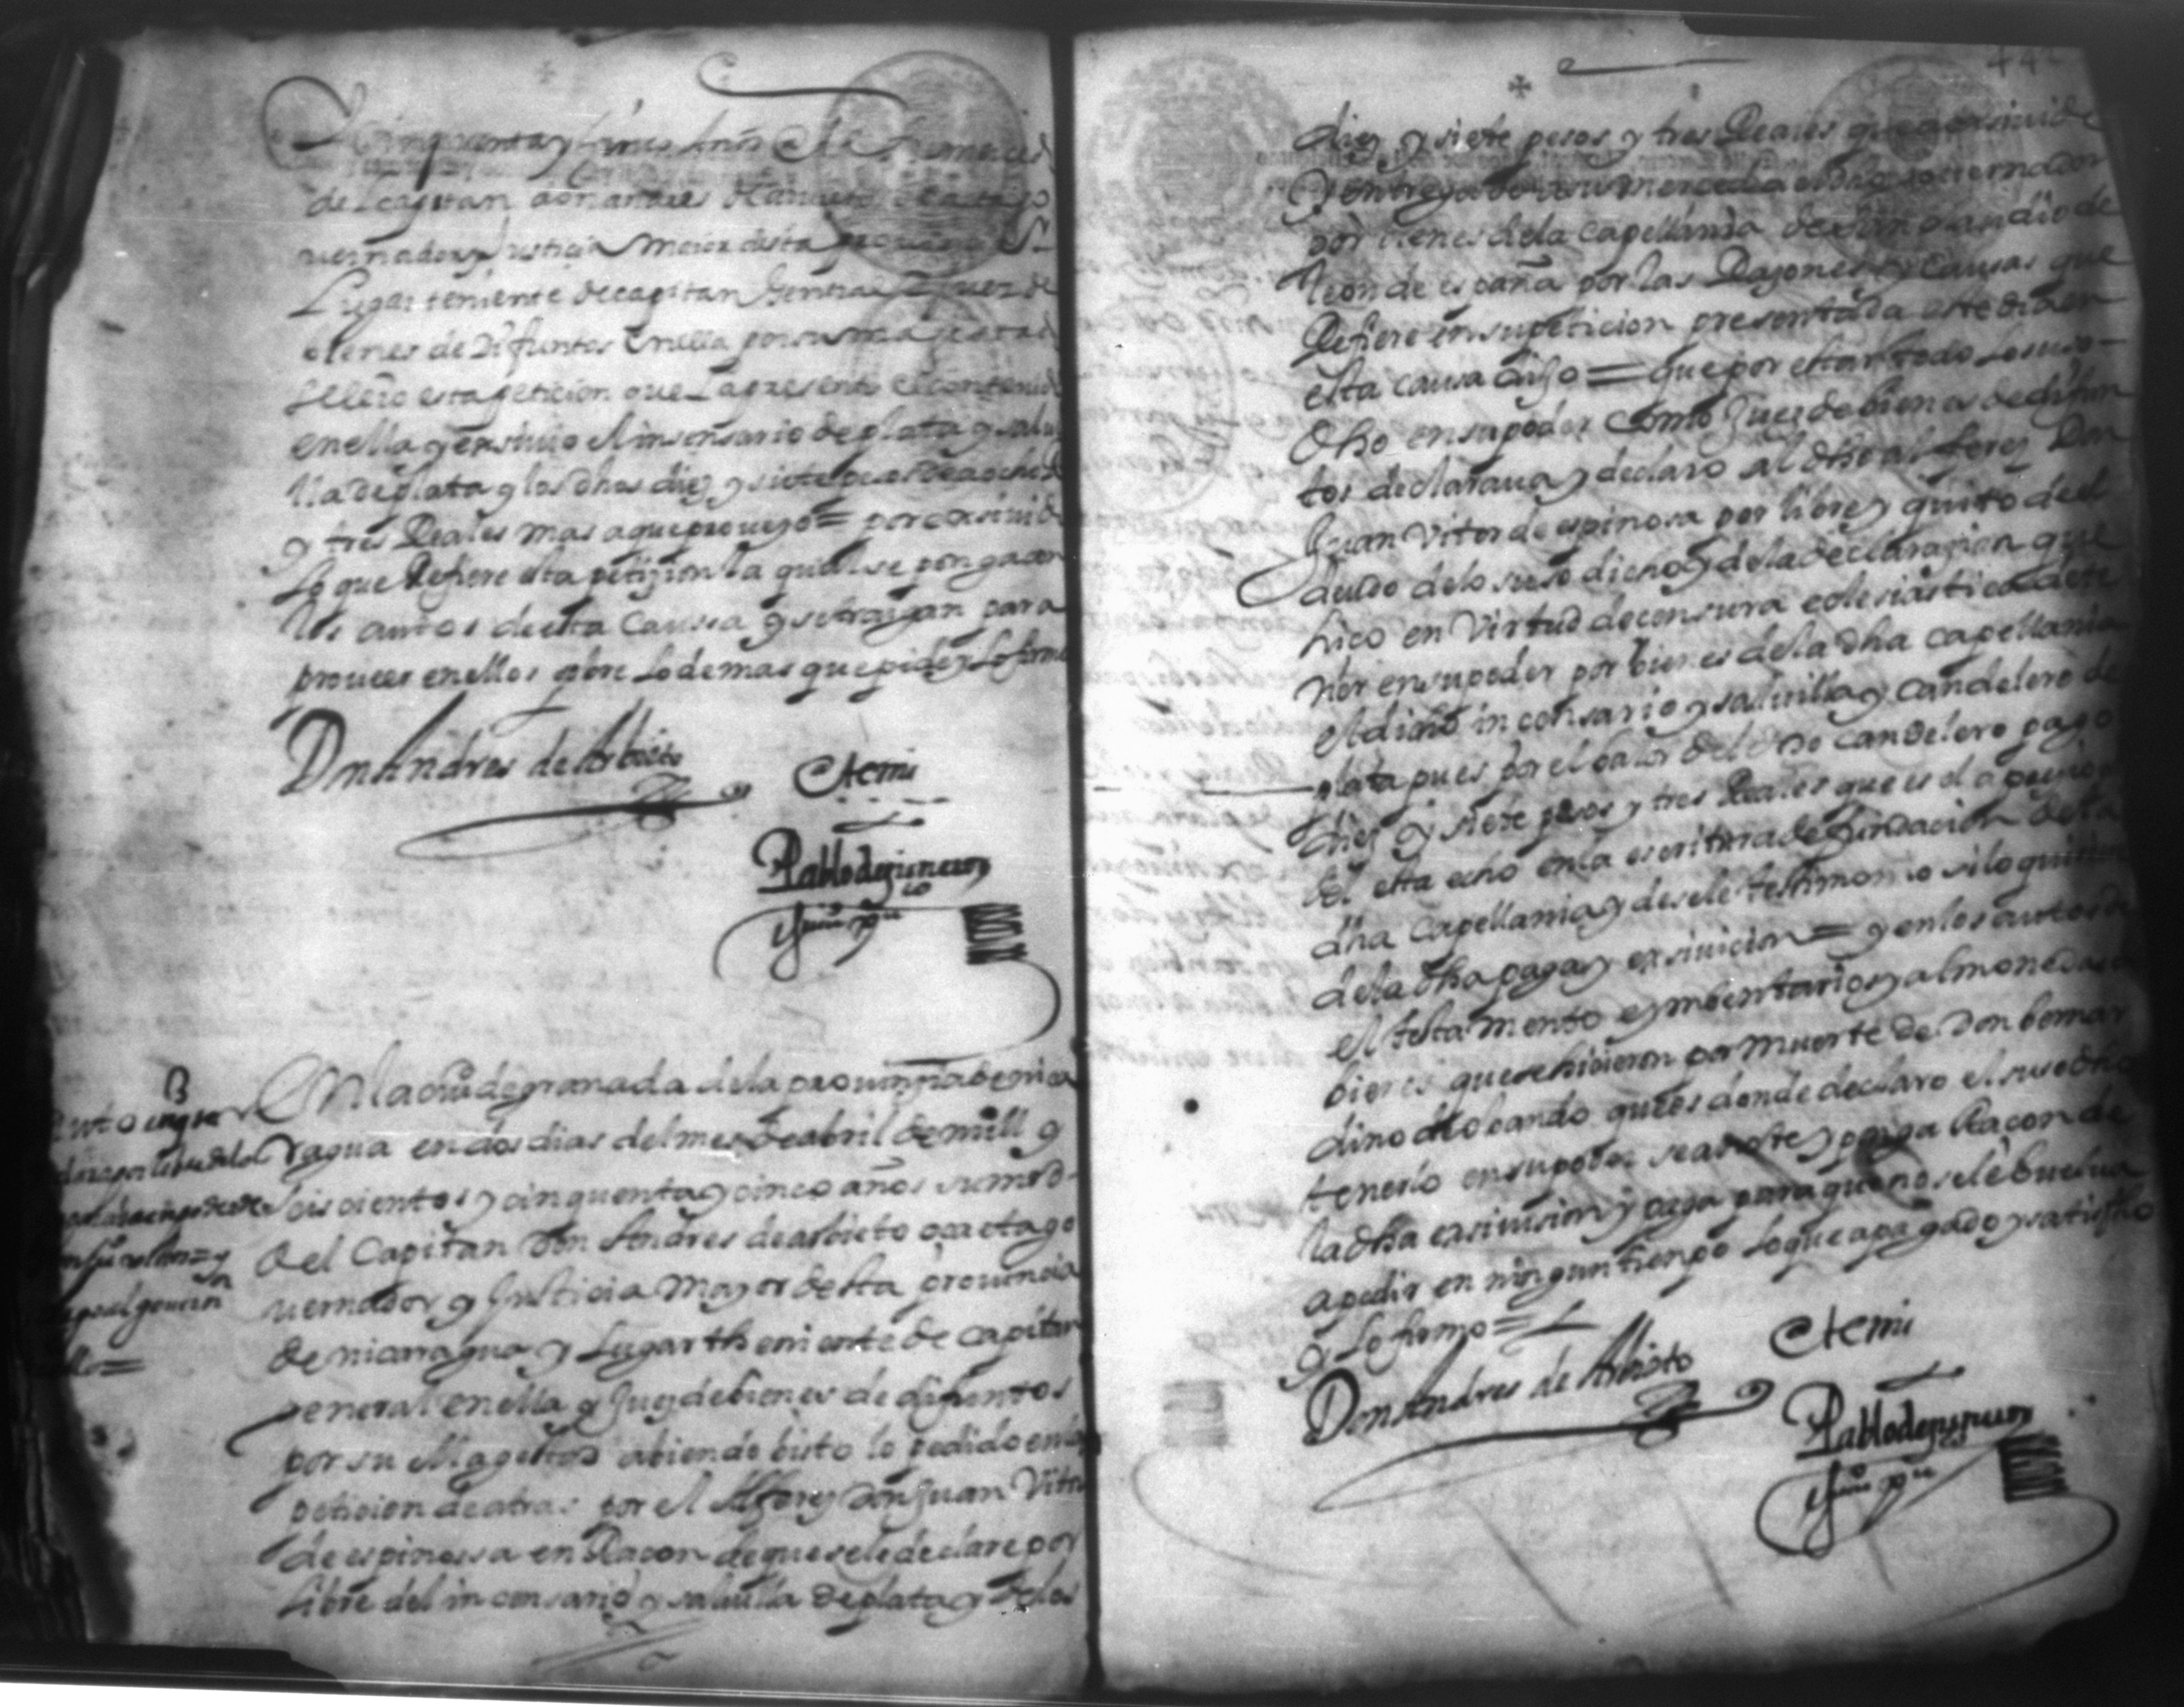 cinquenta y cinco años
del capitan don andres de arbieto
uernador y Justicia maior desta prouincia
Lugar teniente de capitan General y Juez de
bienes de Difuntos en ella por su magestad
se leio esta peticion que la presento el contenido
en ella y exsiuio el insensario de plata y salui
lla de plata y los dhos diez y siete pesos de a ocho
y tres Reales mas a que proueyo = por exsiuido
lo que Refiere esta petizion la qual se ponga con
los autos de esta causa y se traygan para
proueer en ellos sobre lo demas que pide y lo firmo
Don Andres de Arbieto
Ante mi
Pablo de
En la ciud de granada de la prouinzia de nica
ragua en dos dias del mes de abril de mill y
seiscientos y cinquenta y cinco años su md
del Capitan Don Andres de arbieto go
uernador y Justicia Mayor desta prouincia
de nicaragua y Lugar theniente de capitan
general en ella y Juez de bienes de difuntos
por su Magestad abiendo bisto lo pedido en la
peticion de atras por el Alferez Don Juan Vitor
de espinossa en Racon de que se le declare por
libre del incensario y saluilla de plata y de los
diez y siete pesos y tres Reales que a exsiuido
y entregado a su merced el dho gouernador
por bienes de la capellania de
leon de españa por las Razones y causas que
Refiere en su peticion presentada este dia en
esta causa dixo = que por estar todo lo suso
dho en su poder como Juez de bienes de difun
tos declaraua y declaro al dho alferez Don
Juan Vitor de espinosa por libre y quito del
deudo de lo suso dicho y de la declarazion que
hico en Virtud de censura eclesiastica de te
ner en su poder por bienes de la dha capellania
el dicho incensario y saluilla y candelero de
plata pues por el balor del dho candelero pago
diez y siete pesos y tres Reales que es el aprecio q
del esta echo en la escritura de fundacion de la
dha capellania y desele testimonio si lo quisiere
de la dha paga y exsiuicion = y en los autos de
el testamento e ymbentarios y almonedas de
bienes que se hicieron por muerte de Don bernar
dino de obando que es donde declaro el suso dho
tenerlo en su poder se anote y ponga Racon de
la dha exsiuision y paga para que no se le buelua
a pedir en ningun tiempo lo que a pagado y satisfho
y lo firmo =
Don Andres de Arbieto
Ante mi
Pablo de